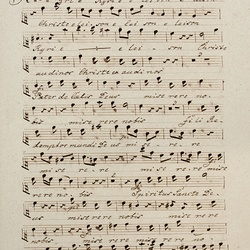 Kyrie elei
Christe elei son e lei son e leison
Kyrie e lei son Christe
audi nos Christe ex audi nos
Pater de Cælis Deus mise rere no
bis mise rere nobis Fi li Re
demptor mundi De us mi se re re
mi se re re mi se re
re re no bis Spiritus Sancte De
us mise rere nobis mise re
re nobis mise rere no